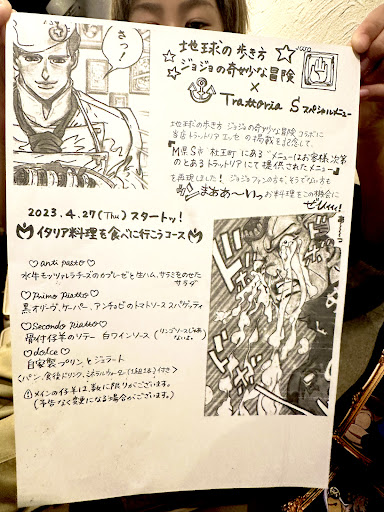 きっ!
地球の歩き方
ジョジョの奇妙な冒険
×
Trattoria S スペシャルメニュー
地球の歩き方 ジョジョの奇妙な冒険 コラボに
当店トラットリア エッセ の掲載を記念して、
『M県S市 "杜王町" にある "メニューはお客様次第"
のとあるトラットリアにて提供されたメニュー』
を再現しました! ジョジョファンの方も、そうでない方も
んまぁぁ〜いっ お料理をこの機会に
ぜひィィィ!
2023.4.27 (Thu) スタートッ!
イタリア料理を食べに行こうコース
♡ anti pasto ♡
水牛モッツァレラチーズのカプレーゼと生ハム、サラミをのせた
サラダ
♡ Primo Piatto ♡
黒オリーヴ、ケーパー、アンチョビのトマトソーススパゲッティ
♡ Secondo Piatto ♡
骨付仔羊のソテー 白ワインソース (リンゴソースじゃあ
ないよ。)
♡ dolce ♡
自家製プリンとジェラート
<パン、食後ドリンク、ミネラルウォーター(1組2本) 付き>
メインの仔羊は、数に限りがございます。
(予告なく変更になる場合がございます。)
ドドドド